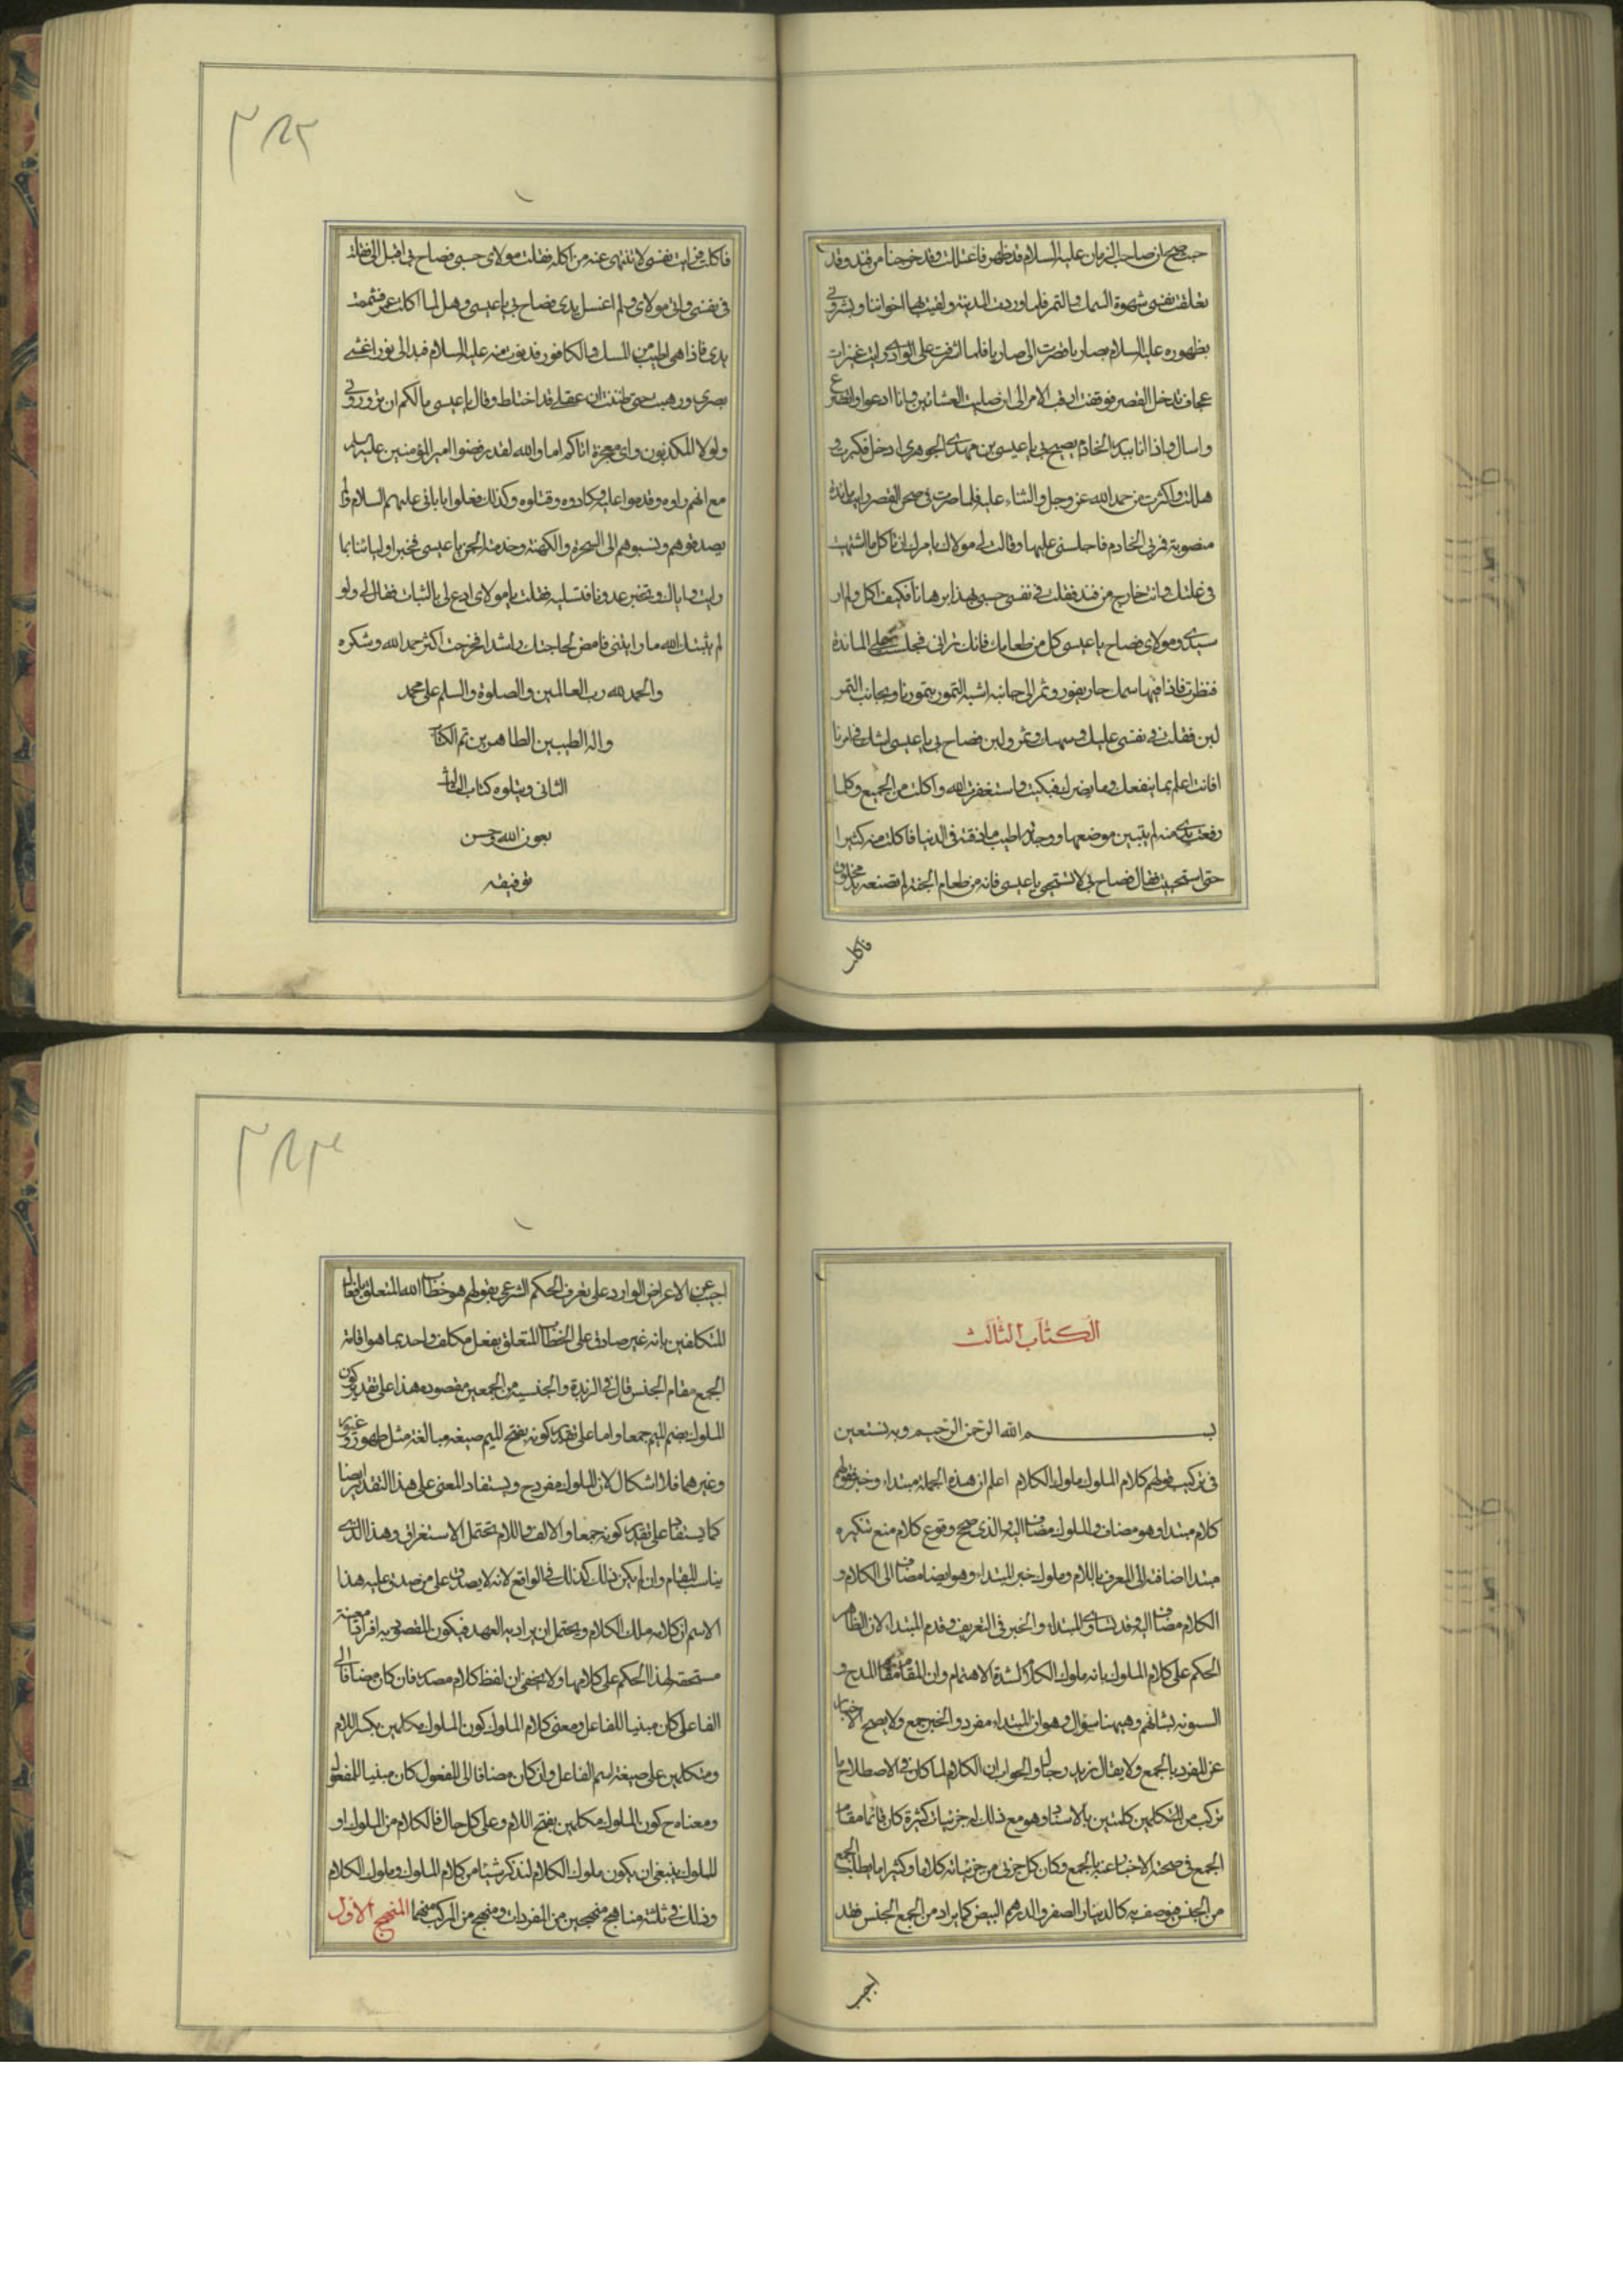 حيث صح ان صاحب الزمان عليه السلام قد ظهر فاعتللت وقد خرجنا من فيد وقد
تعلقت نفسى بشهوة السمك والتمر فلما وردت المدينة ولقيت بها اخواننا وبشرونى
بظهوره عليه السلام بصاريا فصرت الى صاريا فلما اشرفت على الوادى رايت عنيزات
عجاف تدخل القصر فوقفت ارقب الامر الى ان صليت العشائين وانا ادعو واتضرع
واسال واذا انا ببدر الخادم يصيح بى يا عيسى بن مهدى الجوهرى ادخل فكبرت و
هللت واكثرت من حمد الله عز وجل والثناء عليه فلما صرت فى صحن القصر رايت مائدة
منصوبة فمر بى الخادم فاجلسنى عليها وقال لى مولاك يامرك ان تاكل ما اشتهيت
فى علتك وانت خارج من فيد فقلت فى نفسى حسبى بهذا برهانا فكيف اكل ولم ار
سيدى ومولاى فصاح يا عيسى كل من طعامك فانك ترانى فجلست على المائدة
فنظرت فاذا فيها سمك حار يفور وتمر الى جانبه اشبه التمور بتمورنا وبجانب التمر
لبن فقلت فى نفسى عليل وسمك وتمر ولبن فصاح بى يا عيسى اشك فى امرنا
افانت اعلم بما ينفعك وما يضرك فبكيت واستغفرت الله واكلت من الجميع وكلما
رفعت يدى منه لم يتبين موضعها ووجدته اطيب ما ذقته فى الدنيا فاكلت منه كثيرا
حتى استحييت فقال فصاح بى لا تستحى يا عيسى فانه من طعام الجنة لم تصنعه يد مخلوق
فاكلت
فاكلت فرايت نفسى لا تنتهى عنه من اكله فقلت مولاى حسبى فصاح بى اقبل الى فقلت
فى نفسى واتى مولاى ولم اغسل يدى فصاح بى يا عيسى وهل لما اكلت غمر فشممت
يدى فاذا هى اطيب من المسك والكافور فدنوت منه عليه السلام فبدا لى نور اغشى
بصرى ورهبت حتى ظننت ان عقلى قد اختلط وقال يا عيسى ما لكم ان تزورونى
ولو لا المكذبون واى معجزة اتاكم اما والله لقد رفضوا امير المؤمنين عليه السلم
مع انهم راوه وقدموا عليه وكادوه وقتلوه وكذلك فعلوا بابائى عليهم السلام ولم
يصدقوهم ونسبوهم الى السحرة والكهنة وخدمة الجن يا عيسى فخبر اوليائنا بما
رايت واياك وتخبر عدونا فتسلبه فقلت يا مولاى ادع لى بالثبات فقال لى ولو
لم يثبتك الله ما رايتنى فامض لحاجتك راشدا فخرجت اكثر حمد الله وشكره
والحمد لله رب العالمين والصلوة والسلم على محمد
واله الطيبين الطاهرين تم الكتاب
الثانى ويتلوه كتاب الثالث
بعون الله وحسن
توفيقه
الكتاب الثالث
بسم الله الرحمن الرحيم وبه نستعين
فى تركيب قولهم كلام الملوك ملوك الكلام اعلم ان هذه الجملة مبتداء وخبر فقولهم
كلام مبتدا وهو مضاف والملوك مضاف اليه والذى صح وقوع كلام مع تنكيره
مبتدا اضافته الى المعرف باللام وملوك خبر المبتداء وهو ايضا مضاف الى الكلام و
الكلام مضاف اليه وقد تساوى المبتداء والخبر فى التعريف وقدم المبتداء لان الظاهر
الحكم على كلام الملوك بانه ملوك الكلام لشدة الاهتمام وان المقام مقام المدح و
السونه بشانهم وهيهنا سؤال وهو ان المبتداء مفرد والخبر جمع ولا يصح الاخبار
عن المفرد بالجمع ولا يقال زيد رجال والجواب ان الكلام لما كان فى الاصطلاح ما
تركب من المتكلمين كلمتين بالاسناد وهو مع ذلك له جزئيات كثيرة كان قائما مقام
الجمع فى صحة الاخبار عنه بالجمع وكان كل جزئى من جزئياته كلاما وكثيرا ما يطلب الجمع
من الجنس فيوصف به كالدينار الصفر والدرهم البيض كما يراد من الجمع الجنس فقد
اجيب
اجيب عن الاعراض الوارد على تعريف الحكم الشرعى بقولهم هو خطاب الله المتعلق بافعال
المتكلفين بانه غير صادق على الخطاب المتعلق بفعل مكلف واحد بما هو اقامة
الجمع مقام الجنس قال فى الزبدة والجنسية من الجمعين مقصوده هذا على تقدير كون
الملوك بضم الميم جمعا واما على تقدير كونه بفتح الميم صيغه مبالغة مثل طهور وغيور
وغيرهما فلا اشكال لان الملوك مفرد ح ويستفاد المعنى على هذا التقدير ايضا
كما يستفاد على تقدير كونه جمعا والالف واللام تحتمل الاستغراق وهذا الذى
يناسب المقام وان لم يكن ذلك كذلك فى الواقع لانه لا يصدق على من صدق عليه هذا
الاسم ان كلامه ملك الكلام ويحتمل ان يراد به العهد فيكون المقصود به افرادا معينة
مستحقة لهذا الحكم على كلامها ولا يخفى ان لفظ كلام مصدر فان كان مضافا الى
الفاعل كان مبنيا للفاعل ومعنى كلام الملوك كون الملوك مكلمين بكسر اللام
ومتكلمين على صيغة اسم الفاعل وان كان مضافا الى المفعول كان مبنيا للمفعول
ومعناه ح كون الملوك مكلمين بفتح اللام وعلى كل حال فالكلام من الملوك او
للملوك ينبغى ان يكون ملوك الكلام لنذكر شيئا من كلام الملوك وملوك الكلام
وذلك فى ثلثة مناهج منهجين من المفردات ومنهج من المركب منهما المنهج الاول